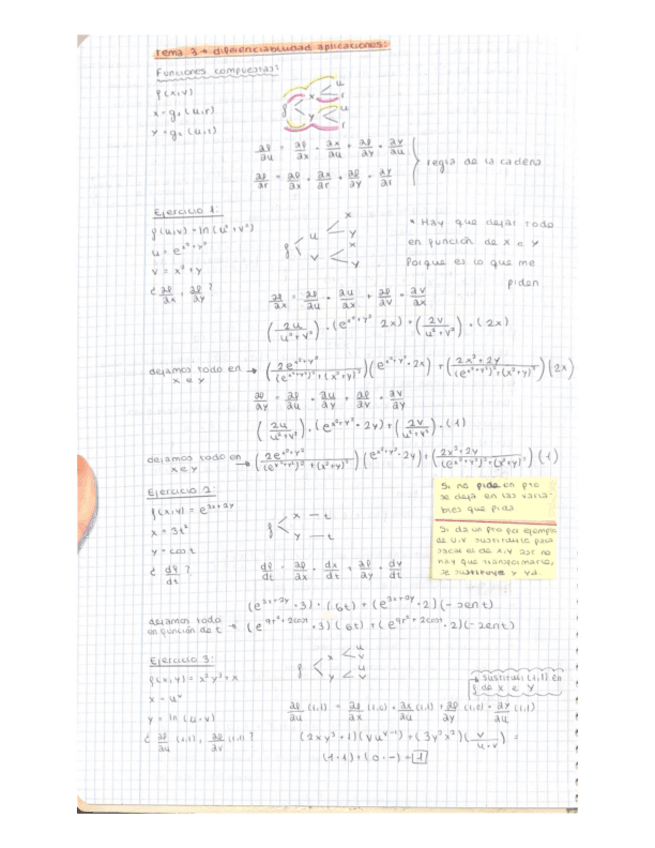 Tema 3 → diferenciabilidad aplicaciones:
Funciones compuestas:
f(x,v)
x = g₁(u,r)
y = g₂(u,r)
f < x < u r
y < u r
∂f/∂u = ∂f/∂x · ∂x/∂u + ∂f/∂y · ∂y/∂u
∂f/∂r = ∂f/∂x · ∂x/∂r + ∂f/∂y · ∂y/∂r
regla de la cadena
Ejercicio 1:
f(u,v) = ln(u²+v²)
u = e^(x²+y²)
v = x²+y
¿ ∂f/∂x , ∂f/∂y ?
f < u < x y
v < x y
* Hay que dejar todo
en función de x e y
Porque es lo que me
piden
∂f/∂x = ∂f/∂u · ∂u/∂x + ∂f/∂v · ∂v/∂x
(2u/(u²+v²)) · (e^(x²+y²) 2x) + (2v/(u²+v²)) · (2x)
dejamos todo en x e y → (2e^(x²+y²)/((e^(x²+y²))²+(x²+y)²)) (e^(x²+y²)·2x) + ((2x²+2y)/((e^(x²+y²))²+(x²+y)²)) (2x)
∂f/∂y = ∂f/∂u · ∂u/∂y + ∂f/∂v · ∂v/∂y
(2u/(u²+v²)) · (e^(x²+y²)·2y) + (2v/(u²+v²)) · (1)
dejamos todo en x e y → (2e^(x²+y²)/((e^(x²+y²))²+(x²+y)²)) (e^(x²+y²)·2y) + ((2x²+2y)/((e^(x²+y²))²+(x²+y)²)) (1)
Ejercicio 2:
f(x,y) = e^(3x+2y)
x = 3t²
y = cos t
¿ df/dt ?
f < x — t
y — t
Si no pide en pto
se deja en las varia-
bles que pida
Si da un pto por ejemplo
de u,v sustituirlo para
sacar el de x,y así no
hay que transformarlo,
se sustituye y ya.
df/dt = ∂f/∂x · dx/dt + ∂f/∂y · dv/dt
(e^(3x+2y)·3)·(6t) + (e^(3x+2y)·2)(-sent)
dejamos todo
en función de t → (e^(9t²+2cost)·3)(6t) + (e^(9t²+2cost)·2)(-sent)
Ejercicio 3:
f(x,y) = x²y³+x
x = u^v
y = ln(u·v)
¿ ∂f/∂u (1,1), ∂f/∂v (1,1) ?
f < x < u v
y < u v
→ sustituir (1,1) en
f de x e y
∂f/∂u (1,1) = ∂f/∂x (1,0) · ∂x/∂u (1,1) + ∂f/∂y (1,0) · ∂y/∂u (1,1)
(2xy³+1)(vu^(v-1)) + (3y²x²)(v/(u·v)) =
(1·1)+(0·-) = 1